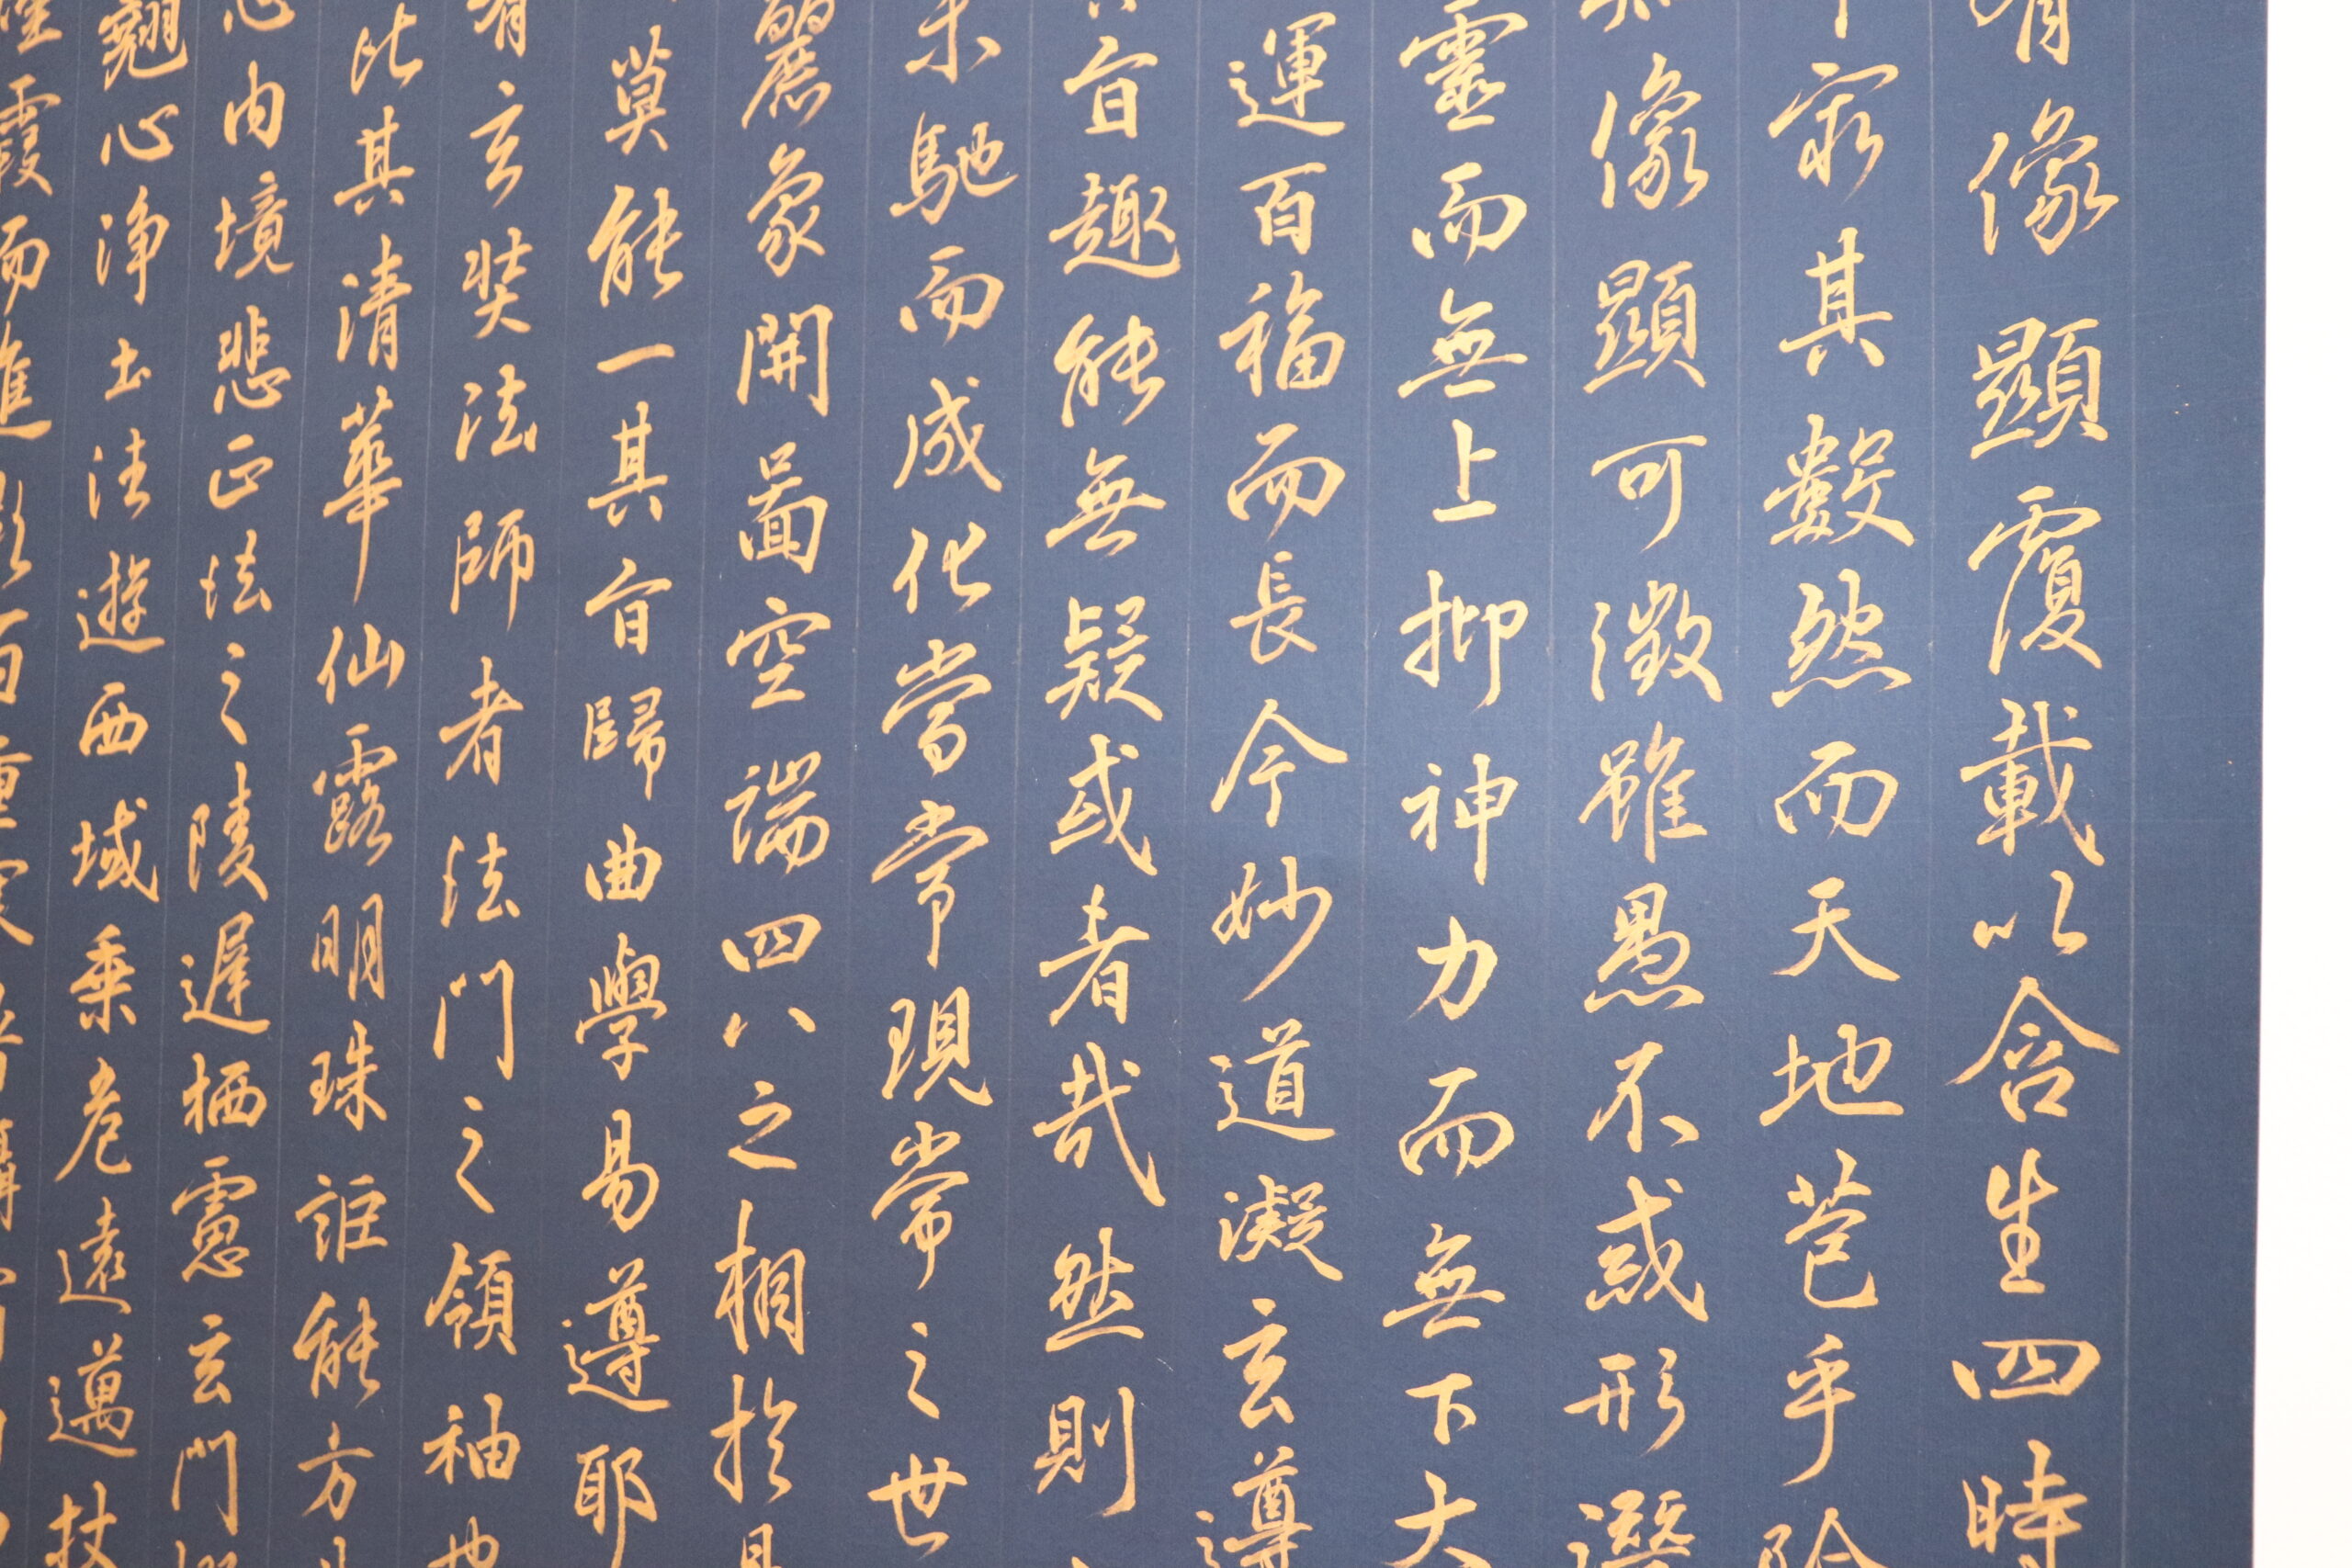 有像顯覆載以含生四時
窮其數然而天地苞乎陰
像顯可徵雖愚不惑形潛
靈而無上抑神力而無下大
運百福而長今妙道凝玄遵
旨趣能無疑或者哉然則
未馳而成化當常現常之世
麗象開圖空端四八之相於
莫能一其旨歸曲學易遵耶
有玄奘法師者法門之領袖也
比其清華仙露明珠誰能方
内境悲正法之陵遲栖慮玄門
翹心淨土法遊西域乘危遠邁杖
霞而進影百重寒